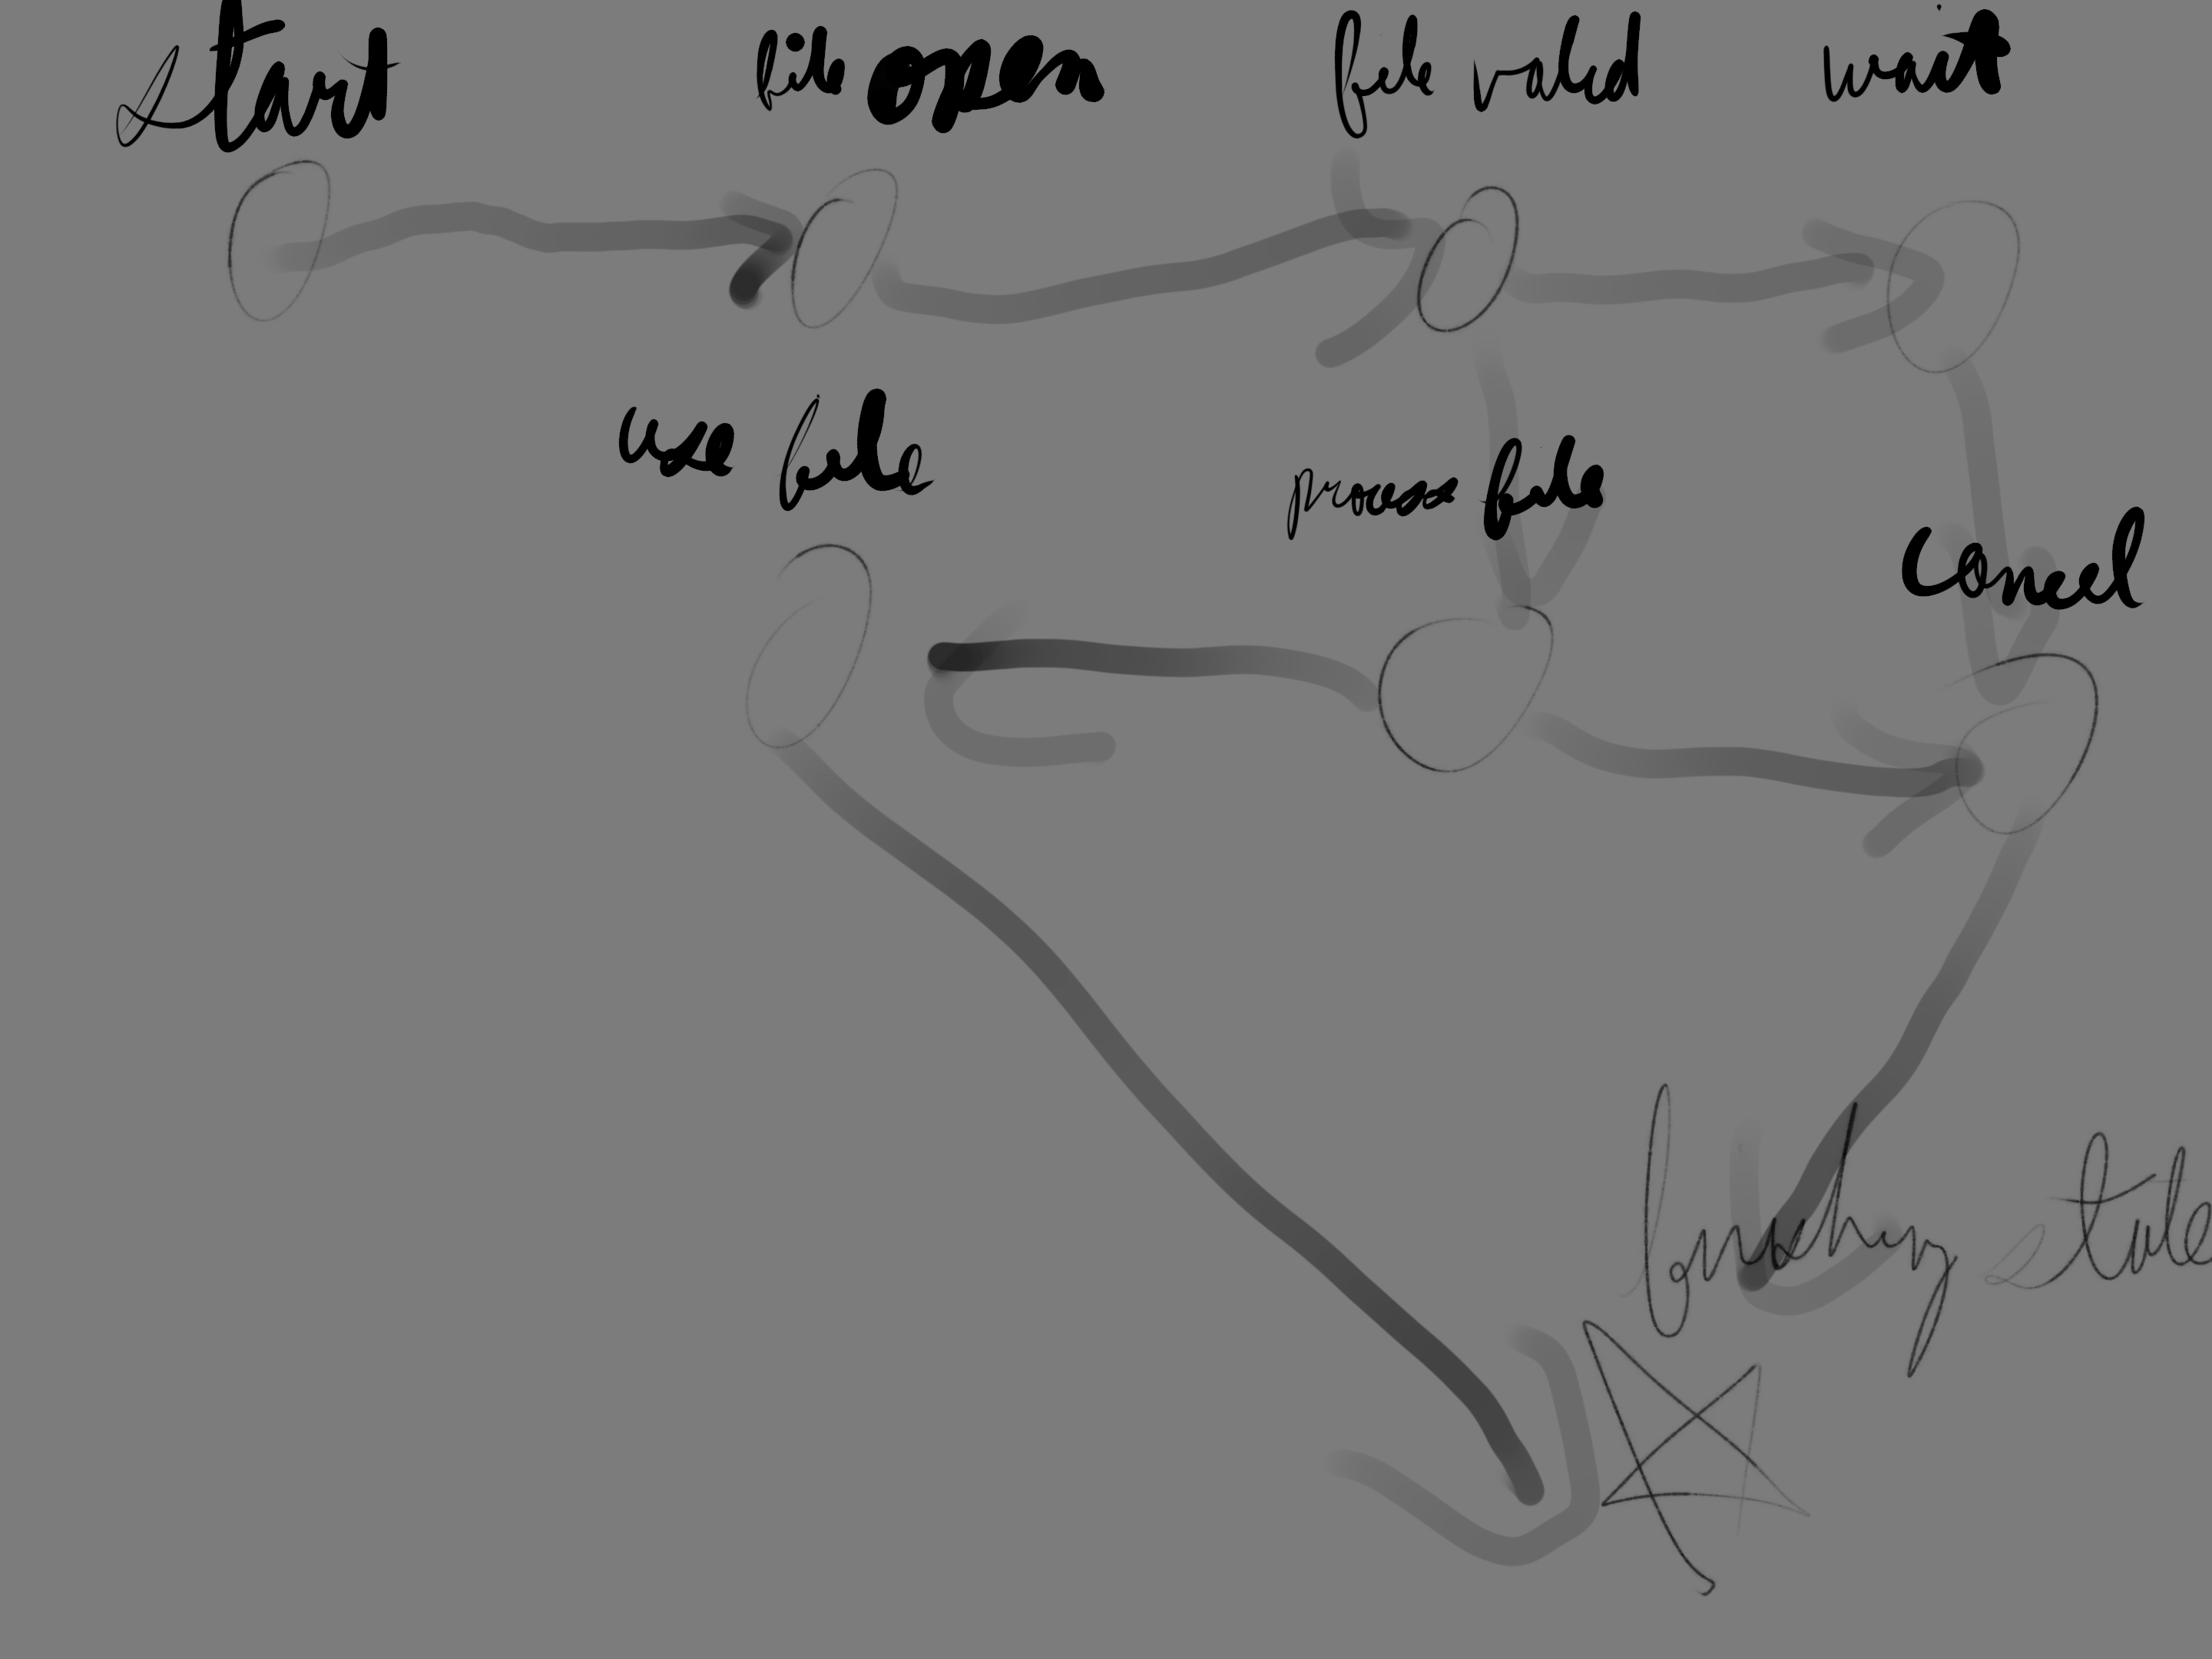 start
file open
file valid
wait
use file
process file
cancel
finishing state